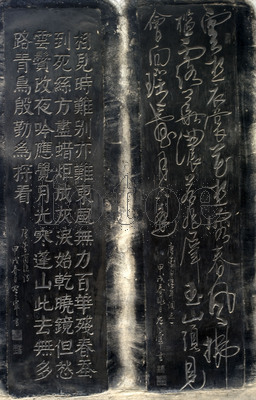 雲想衣裳花想容春風拂
檻露華濃若非群玉山頭見
會向瑤臺月下逢
相見時難別亦難東風無力百華殘春蚕
到死絲方盡蜡炬成灰淚始乾曉鏡但愁
雲鬢改夜吟應覺月光寒蓬山此去無多
路青鳥殷勤為探看